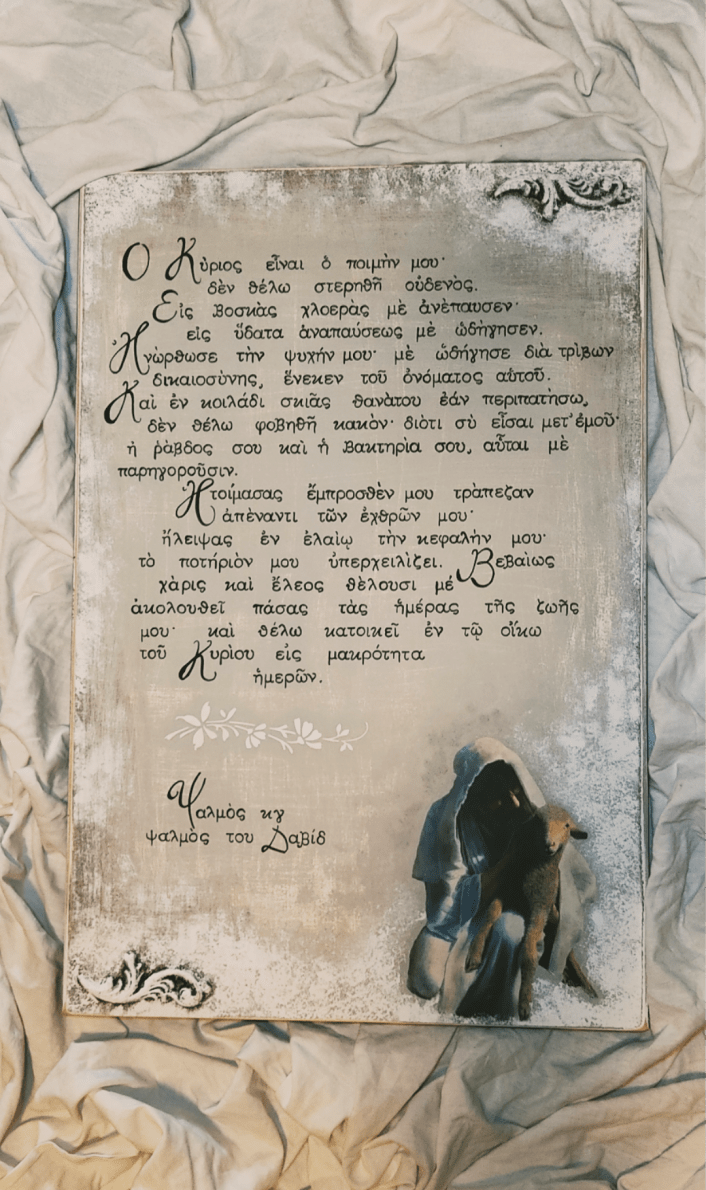 Ο Κύριος εἶναι ὁ ποιμὴν μου·
δὲν θέλω στερηθῆ οὐδενὸς.
Εἰς βοσκὰς χλοερὰς μὲ ἀνὲπαυσεν·
εἰς ὕδατα ἀναπαύσεως μὲ ὡδὴγησεν.
Ἠνὼρθωσε τὴν ψυχήν μου· μὲ ὡδήγησε διὰ τρὶβων
δικαιοσύνης, ἕνεκεν τοῦ ὀνόματος αὑτοῦ.
Καὶ ἐν κοιλάδι σκιᾶς θανὰτου ἐάν περιπατὴσω,
δὲν θέλω φοβηθῆ κακὸν· διὸτι σὺ εἶσαι μετ᾽ ἐμοῦ·
ἡ ῥὰβδος σου καὶ ἡ βακτηρὶα σου, αὗται μὲ
παρηγοροῦσιν.
Ἡτοίμασας ἔμπροσθὲν μου τρὰπεζαν
ἀπὲναντι τῶν ἐχθρῶν μου·
ἤλειψας ἐν ἐλαὶῳ τὴν κεφαλὴν μου·
τὸ ποτήριὸν μου ὑπερχειλὶζει. Βεβαὶως
χὰρις καὶ ἔλεος θὲλουσι μέ
ἀκολουθεῖ πάσας τὰς ἡμέρας τῆς ζωῆς
μου· καὶ θέλω κατοικεῖ ἐν τῷ οἴκω
τοῦ Κυρὶου εἰς μακρότητα
ἡμερῶν.
Ψαλμὸς κγ
ψαλμὸς του Δαβίδ